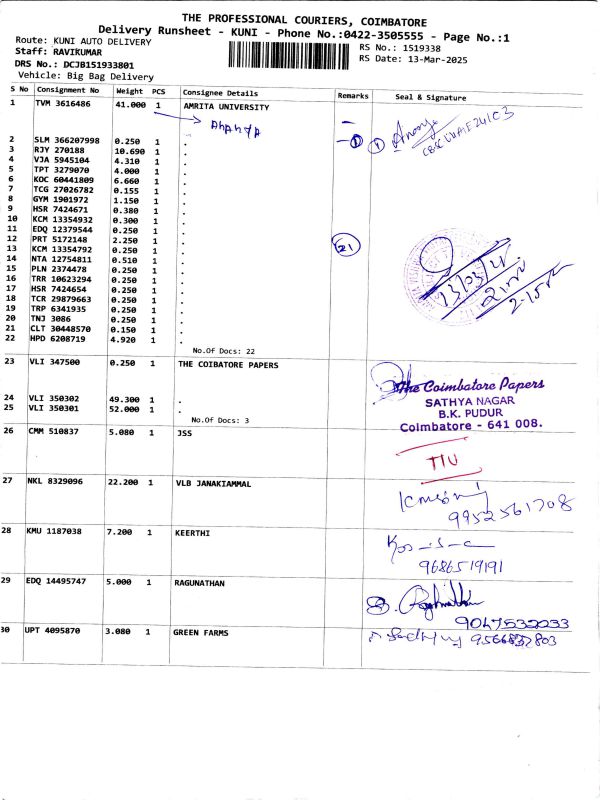 THE PROFESSIONAL COURIERS, COIMBATORE
Delivery Runsheet - KUNI - Phone No.:0422-3505555 - Page No.:1
Route: KUNI AUTO DELIVERY
RS No.: 1519338
Staff: RAVIKUMAR
RS Date: 13-Mar-2025
DRS No.: DCJB151933801
Vehicle: Big Bag Delivery
S No Consignment No Weight PCS Consignee Details Remarks Seal & Signature
1 TVM 3616486 41.000 1 AMRITA UNIVERSITY
2 SLM 366207998 0.250 1 .
3 RJY 270188 10.690 1 .
4 VJA 5945104 4.310 1 .
5 TPT 3279070 4.000 1 .
6 KOC 60441809 6.660 1 .
7 TCG 27026782 0.155 1 .
8 GYM 1901972 1.150 1 .
9 HSR 7424671 0.380 1 .
10 KCM 13354932 0.300 1 .
11 EDQ 12379544 0.250 1 .
12 PRT 5172148 2.250 1 .
13 KCM 13354792 0.250 1 .
14 NTA 12754811 0.510 1 .
15 PLN 2374478 0.250 1 .
16 TRR 10623294 0.250 1 .
17 HSR 7424654 0.250 1 .
18 TCR 29879663 0.250 1 .
19 TRP 6341935 0.250 1 .
20 TNJ 3086 0.250 1 .
21 CLT 30448570 0.150 1 .
22 HPD 6208719 4.920 1 .
21
13/03/25
2-15
No.Of Docs: 22
23 VLI 347500 0.250 1 THE COIBATORE PAPERS
24 VLI 350302 49.300 1 .
25 VLI 350301 52.000 1 .
No.Of Docs: 3
The Coimbatore Papers
SATHYA NAGAR
B.K. PUDUR
Coimbatore - 641 008.
26 CMM 510837 5.080 1 JSS
27 NKL 8329096 22.200 1 VLB JANAKIAMMAL
9952561708
28 KMU 1187038 7.200 1 KEERTHI
9686519191
29 EDQ 14495747 5.000 1 RAGUNATHAN
9047532033
30 UPT 4095870 3.080 1 GREEN FARMS
9566837803